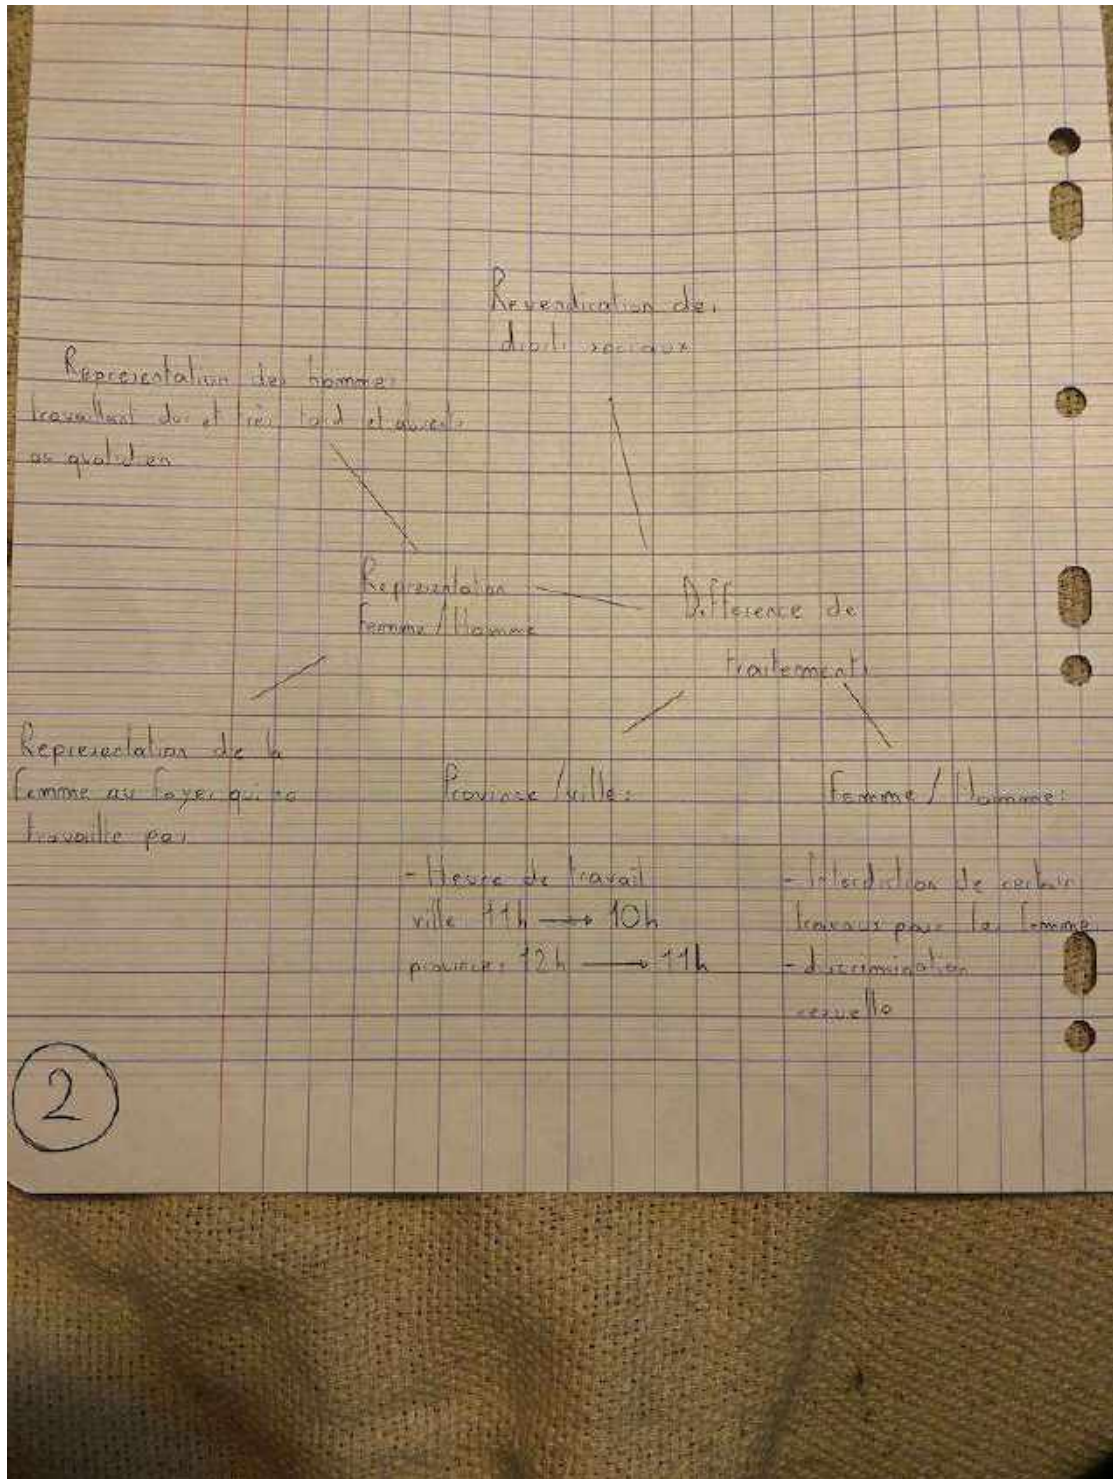 Revendication des
droits sociaux
Representation des hommes
travaillant dur et très tard et absents
au quotidien
Representation
Femme / Homme
Difference de
traitements
Representation de la
femme au foyer qui ne
travaille pas
Province / ville :
- Heure de travail
ville 11h → 10h
province : 12h → 11h
Femme / Homme :
- Interdiction de certain
travaux pour les femme
- discrimination
sexuelle
2